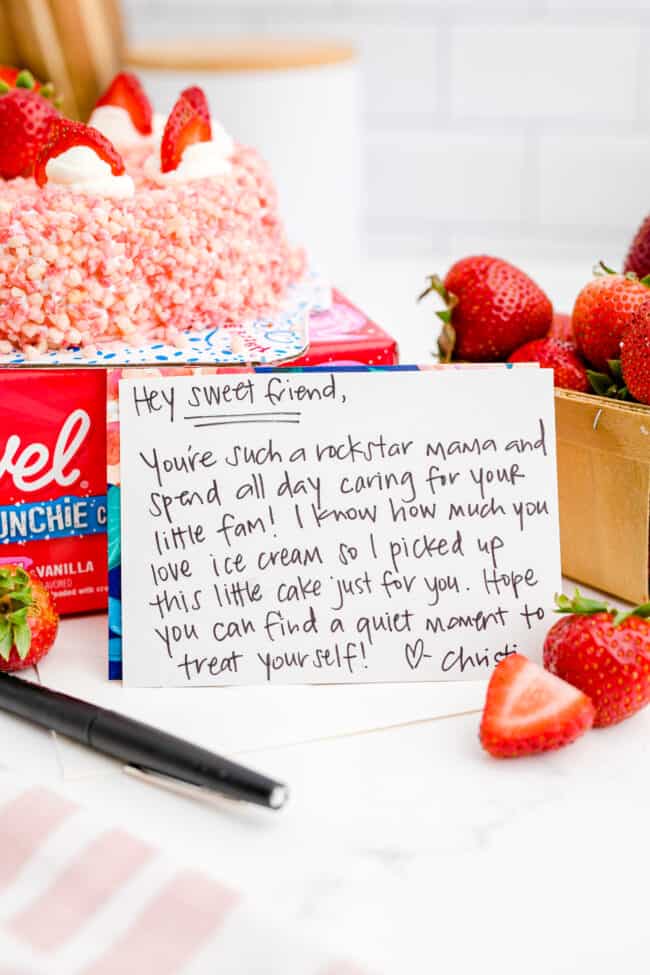 Hey sweet friend,
You're such a rockstar mama and
spend all day caring for your
little fam! I know how much you
love ice cream so I picked up
this little cake just for you. Hope
you can find a quiet moment to
treat yourself! ♡- Christi
vel
UNCHiE C
VANILLA